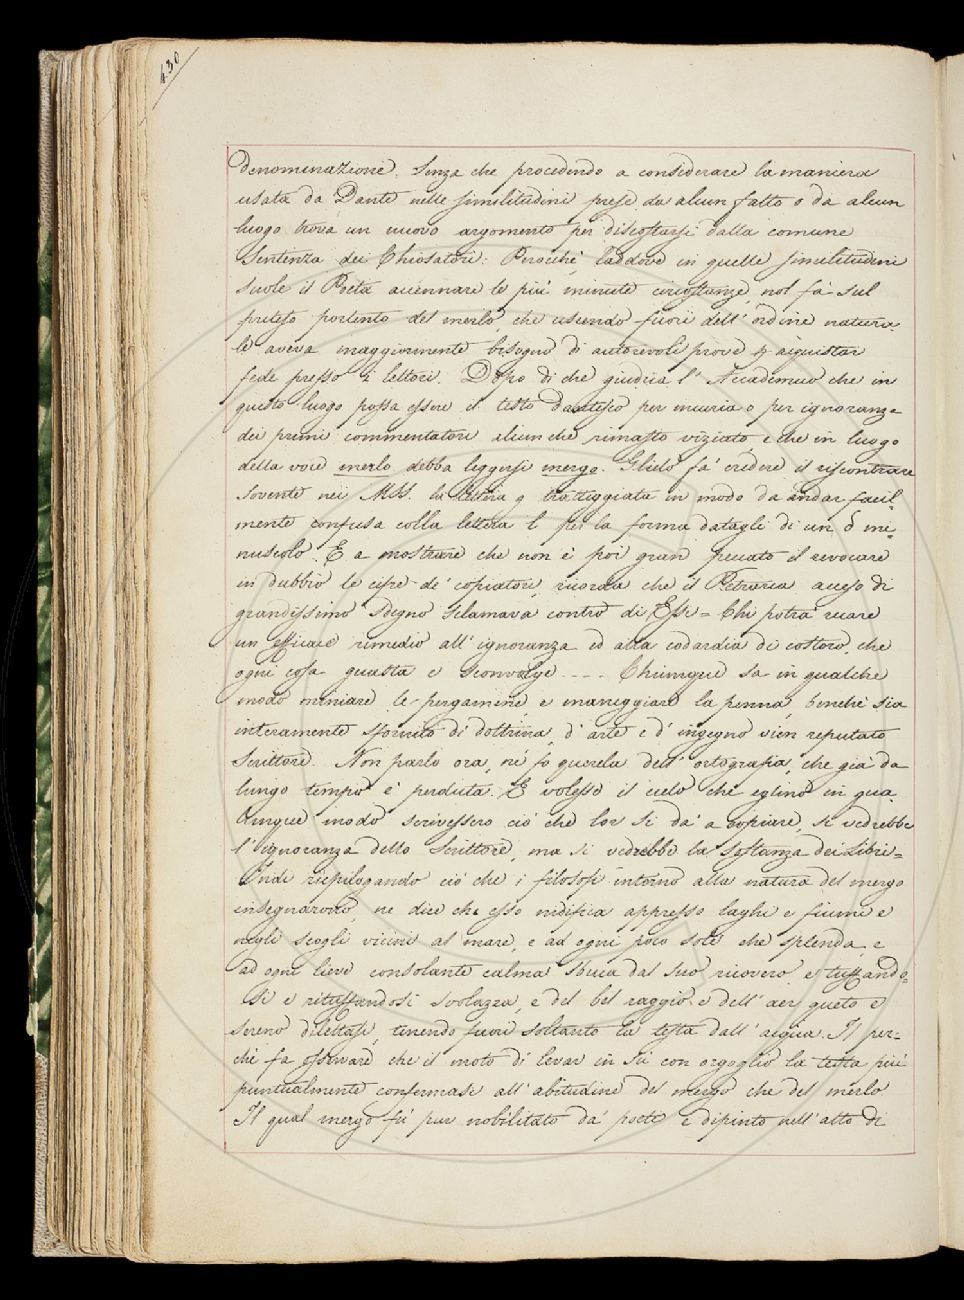 430
denominazione. Senza che procedendo a considerare la maniera
usata da Dante nelle similitudini prese da alcun fatto o da alcun
luogo trova un nuovo argomento per discostarsi dalla comune
Sentenza dei Chiosatori: Perocchè, laddove in quelle similitudini
suole il Poeta accennare le più minute circostanze, nol fà sul
preteso portento del merlo, che uscendo fuori dell' ordine natura
le aveva maggiormente bisogno di autorevoli prove p acquistar
fede presso i lettori. Dopo di che giudica l' Accademico che in
questo luogo possa essere il testo dantesco per incuria o per ignoranza
dei primi commentatori alcun chè rimasto viziato, e che in luogo
della voce merlo debba leggersi mergo. Glielo fa' credere il riscontrare
sovente nei MSS. la lettera g tratteggiata in modo da andar facil=
mente confusa colla lettera l per la forma datagli di un d mi=
nuscolo. E a mostrare che non è poi gran peccato il revocare
in dubbio le cifre de' copiatori, ricorda che il Petrarca acceso di
grandissimo sdegno sclamava contro di Essi = Chi potrà recare
un efficace rimedio all' ignoranza ed alla codardia di costoro, che
ogni cosa guasta e sconvolge .... Chiunque sa in qualche
modo miniare le pergamine e maneggiare la penna, benchè sia
interamente sfornito di dottrina, d' arte e d' ingegno vien reputato
Scrittore. Non parlo ora, nè fo querela dell' ortografia, che già da
lungo tempo è perduta. E volesse il cielo che eglino in qua
lunque modo scrivessero ciò che lor si dà a copiare, si vedrebbe
l' ignoranza dello Scrittore, ma si vedrebbe la sostanza dei Libri=
Indi riepilogando ciò che i filosofi intorno alla natura del mergo
insegnarono, ne dice che esso nidifica appresso laghi e fiumi e
negli scogli vicini al mare, e ad ogni poco sole che splenda, e
ad ogni lieve consolante calma sbuca dal suo ricovero, e tuffando=
si e rituffandosi svolazza, e del bel raggio e dell' aer queto e
sereno dilettasi, tenendo fuori soltanto la testa dall' acqua. Il per=
chè fa osservare che il moto di levar in sù con orgoglio la testa più
puntualmente confermasi all' abitudine del mergo che del merlo.
Il qual mergo fù pur nobilitato da' poeti e dipinto nell' atto di